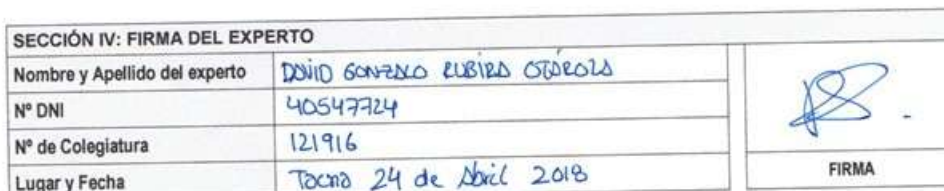 SECCIÓN IV: FIRMA DEL EXPERTO
Nombre y Apellido del experto DAVID GONZALO RUBIRA OTAROLA
Nº DNI 40547724
Nº de Colegiatura 121916
Lugar y Fecha Tacna 24 de Abril 2018
FIRMA